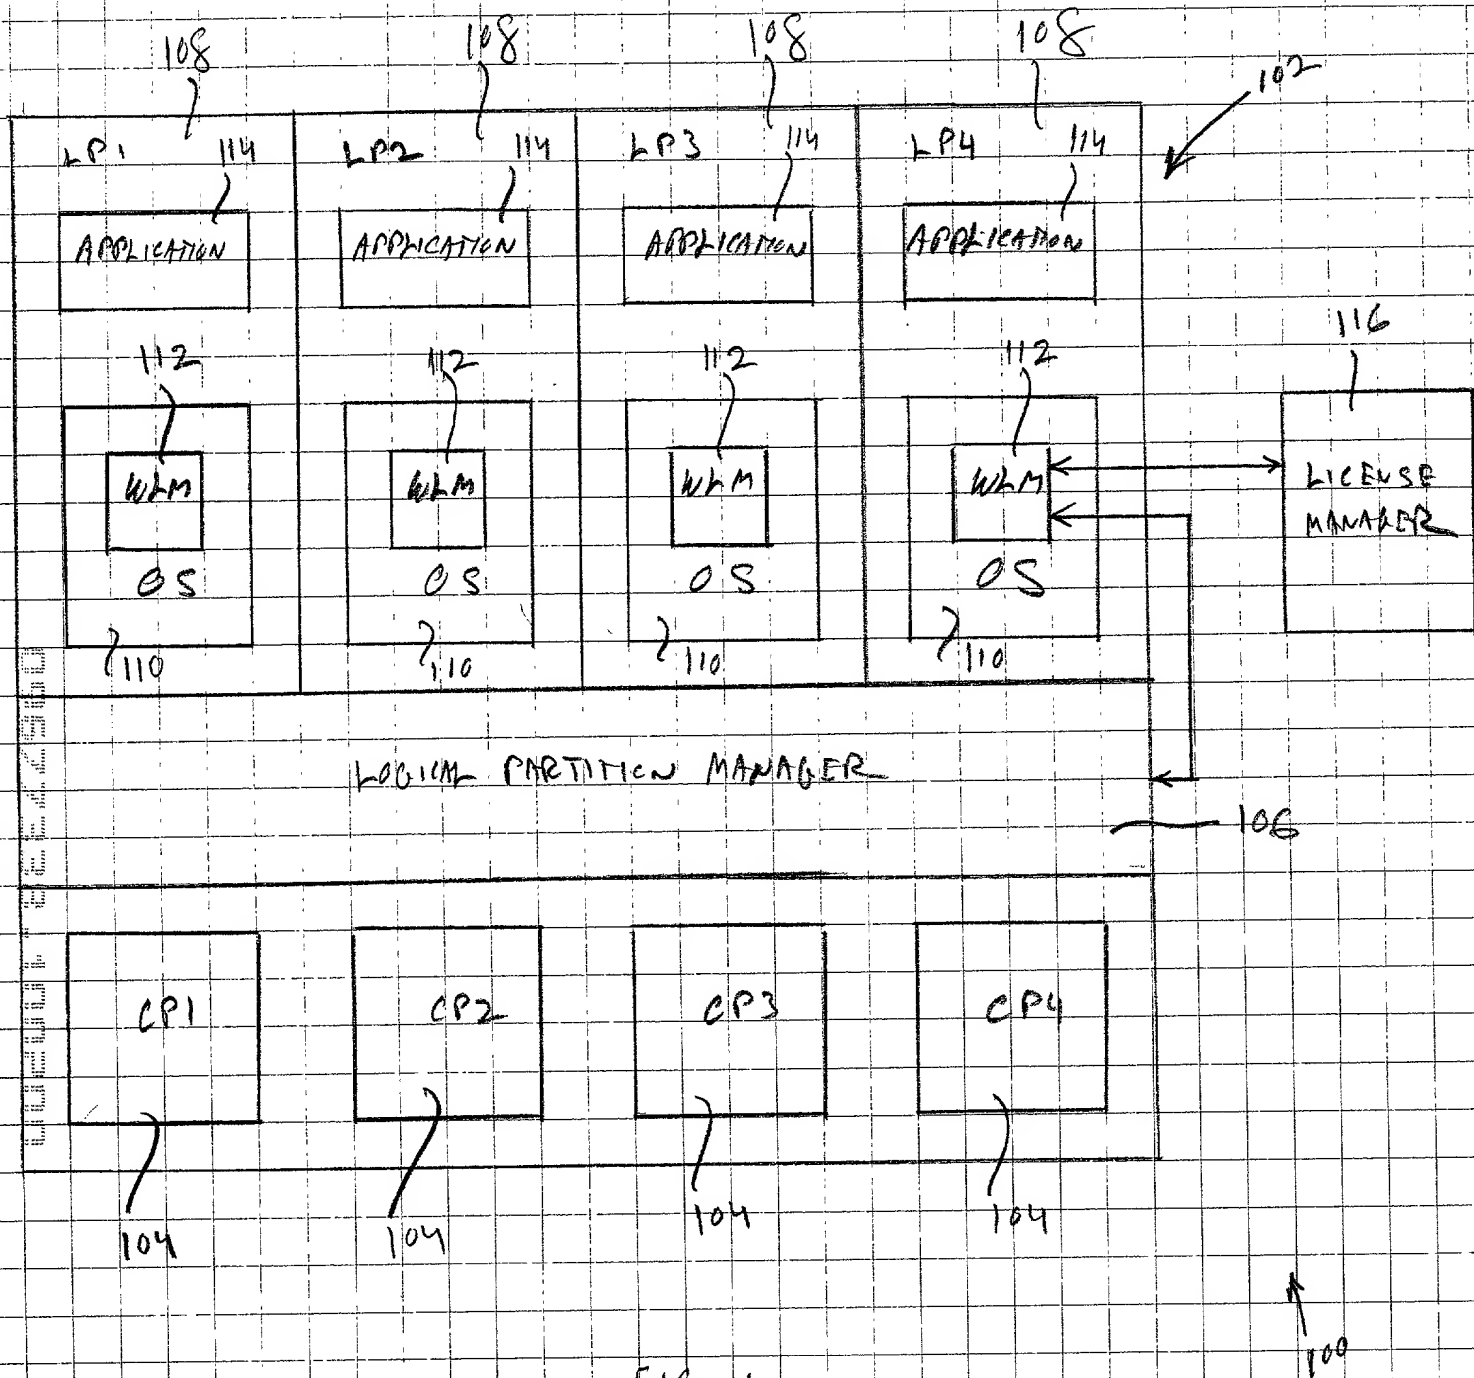 108 108 108 108
102
LP1 114 LP2 114 LP3 114 LP4 114
APPLICATION APPLICATION APPLICATION APPLICATION
116
112 112 112 112
WLM WLM WLM WLM
LICENSE
MANAGER
OS OS OS OS
110 110 110 110
LOGICAL PARTITION MANAGER
106
CP1 CP2 CP3 CP4
104 104 104 104
100